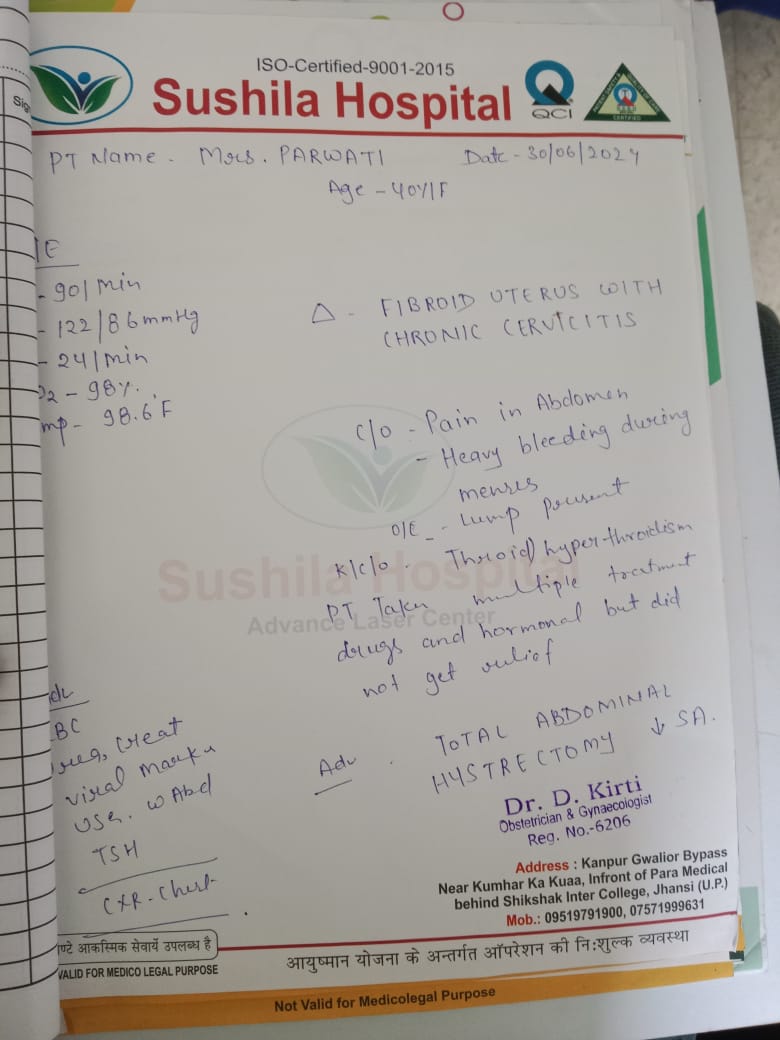 ISO-Certified-9001-2015
Sushila Hospital
QCI
CERTIFIED
Sig
PT Name - Mrs. PARWATI Date - 30/06/2024
Age - 40Y/F
/E
- 90/min
- 122/86mmHg
- 24/min
O2 - 98%.
mp - 98.6°F
Δ - FIBROID UTERUS WITH
CHRONIC CERVICITIS
C/O - Pain in Abdomen
- Heavy bleeding during
menses
O/E - Lump present
K/C/O - Throid) hyperthroidism
PT Taken multiple treatment
drugs and hormonal but did
not get relief
Sushila Hospital
Advance Laser Center
Adv. TOTAL ABDOMINAL
HYSTRECTOMY ↓ SA.
BC
creat
viral marker
USG. w Abd
TSH
CXR - Chest
Dr. D. Kirti
Obstetrician & Gynaecologist
Reg. No.-6206
Address : Kanpur Gwalior Bypass
Near Kumhar Ka Kuaa, Infront of Para Medical
behind Shikshak Inter College, Jhansi (U.P.)
Mob.: 09519791900, 07571999631
ण्टे आकस्मिक सेवायें उपलब्ध है
VALID FOR MEDICO LEGAL PURPOSE
आयुष्मान योजना के अन्तर्गत ऑपरेशन की नि:शुल्क व्यवस्था
Not Valid for Medicolegal Purpose